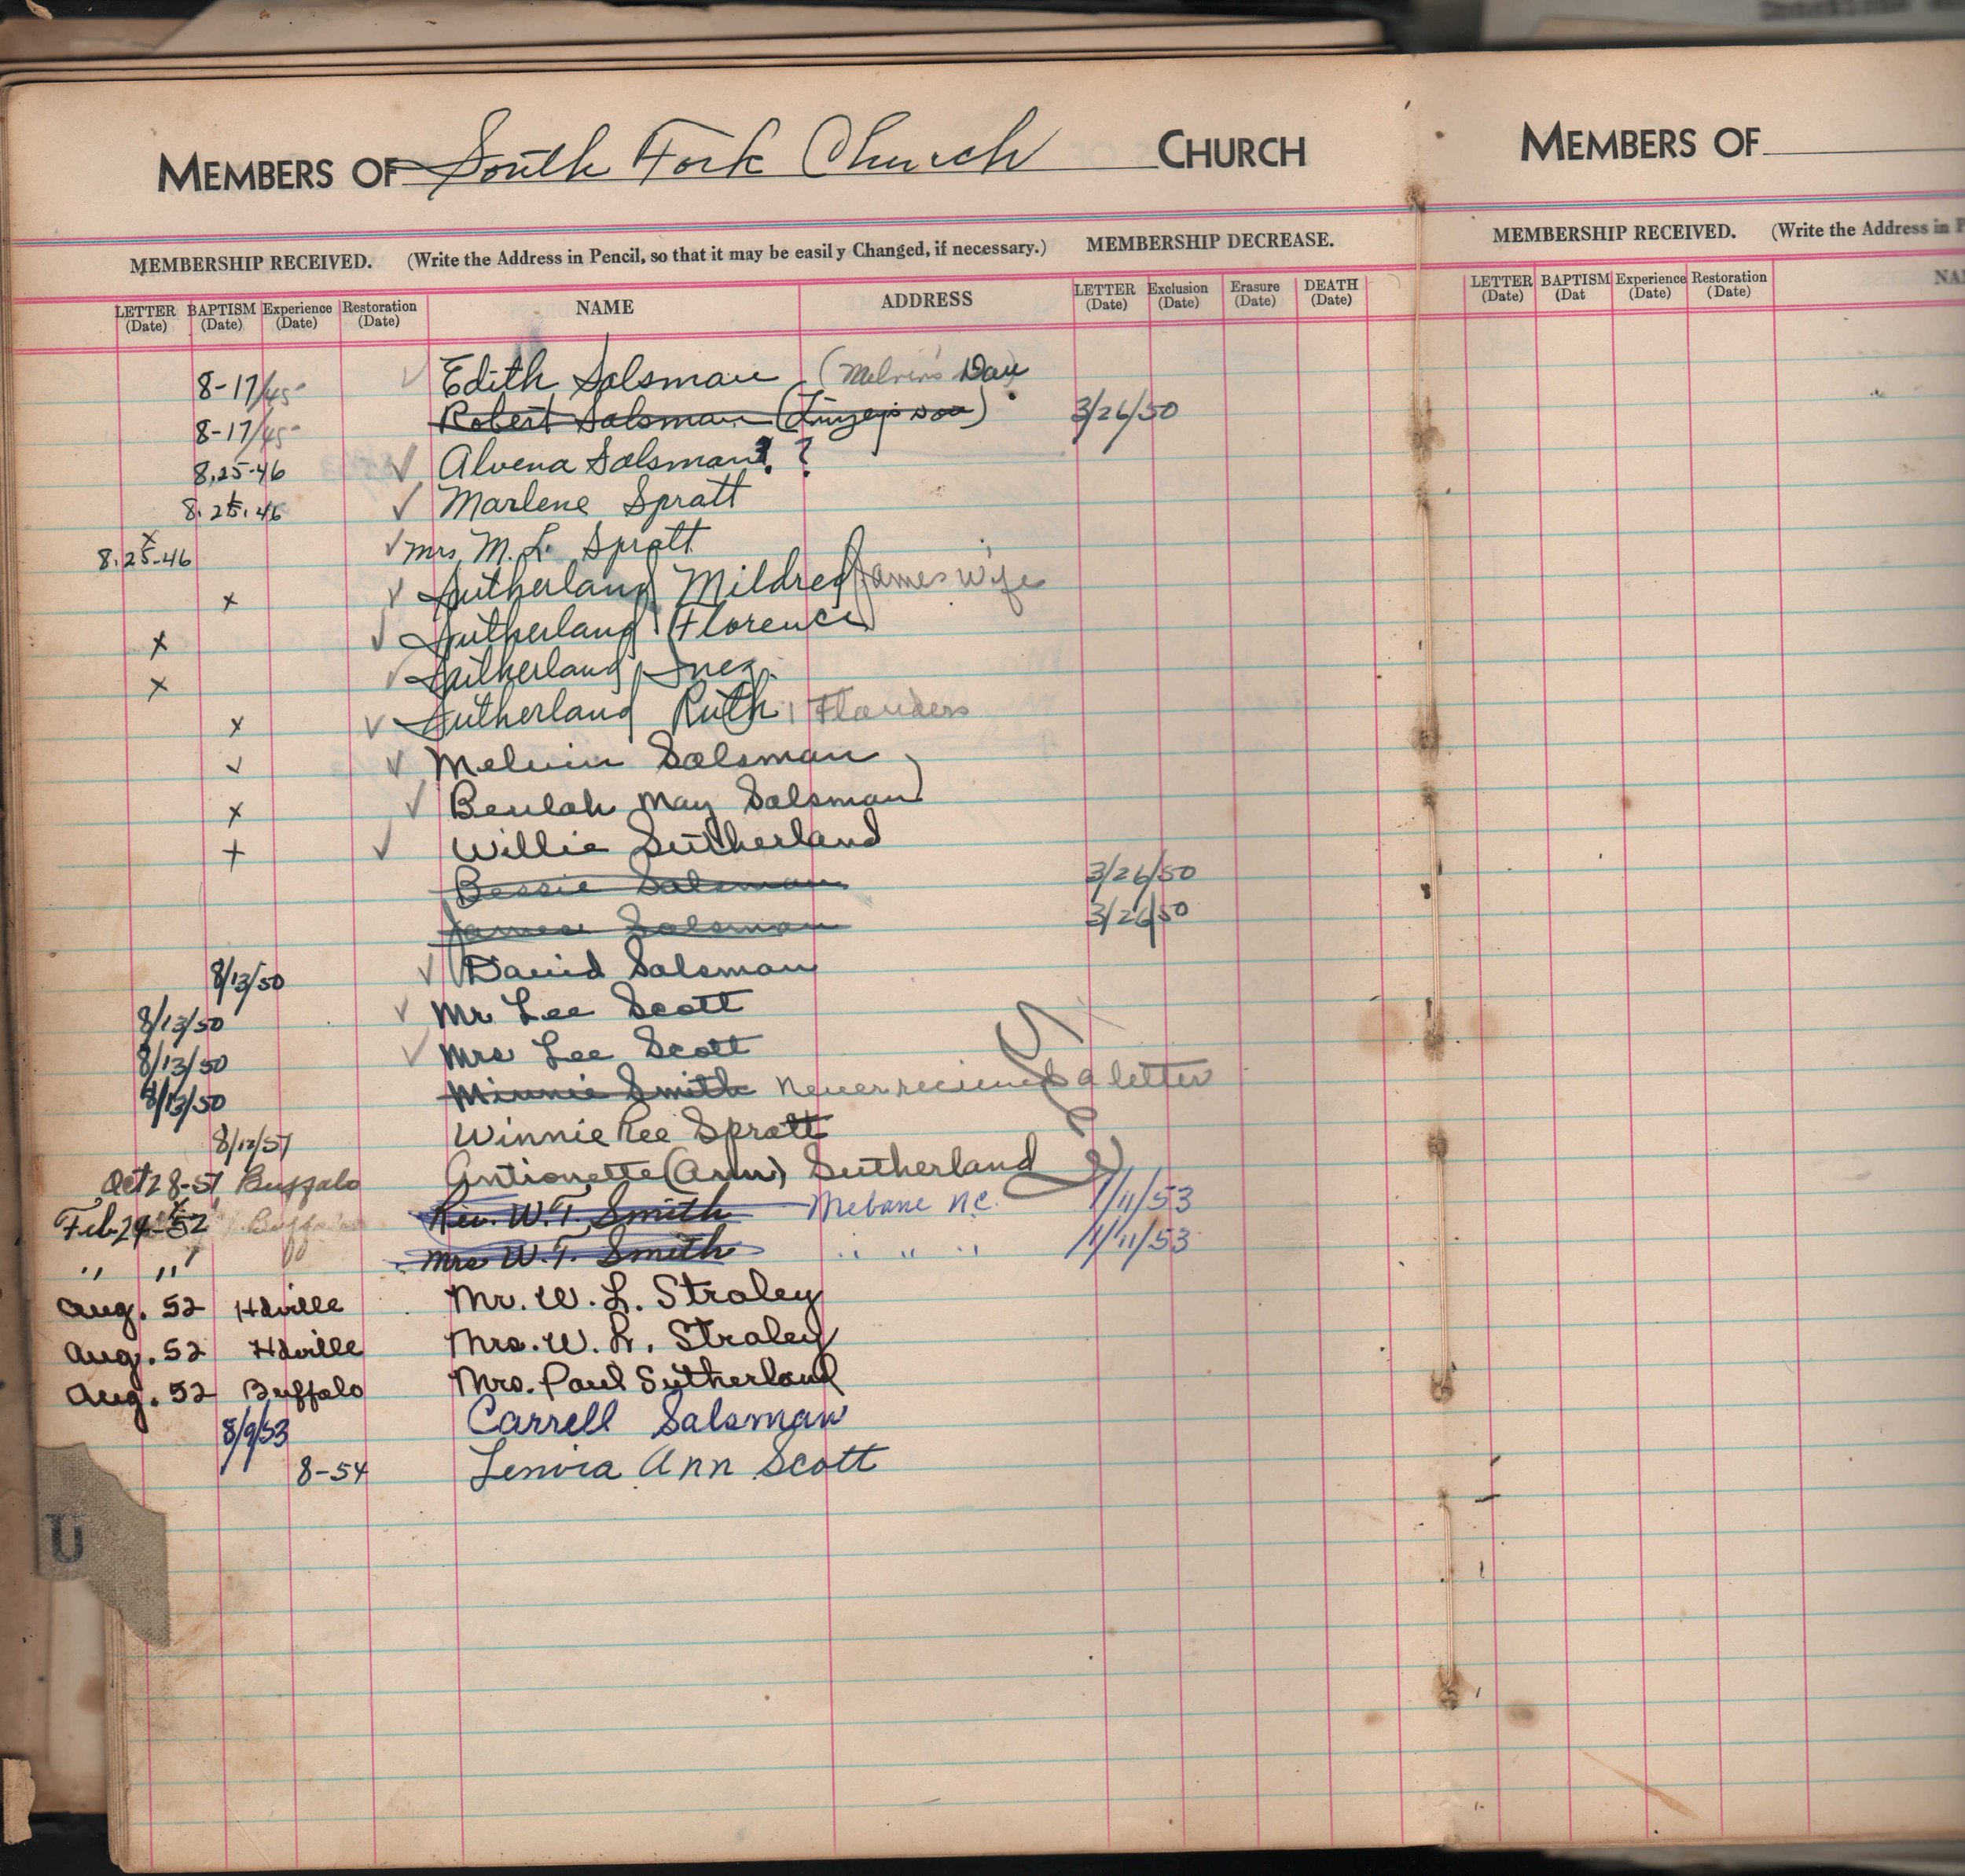 MEMBERS OF South Fork Church CHURCH
MEMBERSHIP RECEIVED. (Write the Address in Pencil, so that it may be easily Changed, if necessary.) MEMBERSHIP DECREASE.
LETTER (Date) BAPTISM (Date) Experience (Date) Restoration (Date) NAME ADDRESS LETTER (Date) Exclusion (Date) Erasure (Date) DEATH (Date)
8-17/45 ✓ Edith Salsman (Melvin's Dau)
8-17/45 Robert Salsman (Linzey's son) 3/26/50
8.25-46 ✓ Alvena Salsman ? ?
8.25.46 ✓ Marlene Spratt
x 8.25-46 ✓ Mrs. M. L. Spratt
x ✓ Sutherland Mildred James Wife
x ✓ Sutherland Florence
x ✓ Sutherland, Inez
x ✓ Sutherland Ruth, Flanders
✓ ✓ Melvin Salsman
x ✓ Beulah May Salsman
+ ✓ Willie Sutherland
Bessie Salsman 3/26/50
James Salsman 3/26/50
8/13/50 ✓ David Salsman
8/13/50 ✓ Mr Lee Scott
8/13/50 ✓ Mrs Lee Scott
8/13/50 Minnie Smith Never recieved a letter
8/12/51 Winnie Lee Spratt
Oct 28-51 Buffalo Antionette (Ann) Sutherland
Feb 24-52 Buffalo Rev. W.T. Smith Mebane N.C. 1/11/53
" " " Mrs W.T. Smith " " " 1/11/53
Aug. 52 Hdville Mr. W. L. Straley
Aug. 52 Hdville Mrs. W. L. Straley
Aug. 52 Buffalo Mrs. Paul Sutherland
8/9/53 Carrell Salsman
8-54 Lenvia Ann Scott
U
MEMBERS OF
MEMBERSHIP RECEIVED. (Write the Address in
LETTER (Date) BAPTISM (Dat Experience (Date) Restoration (Date) NA